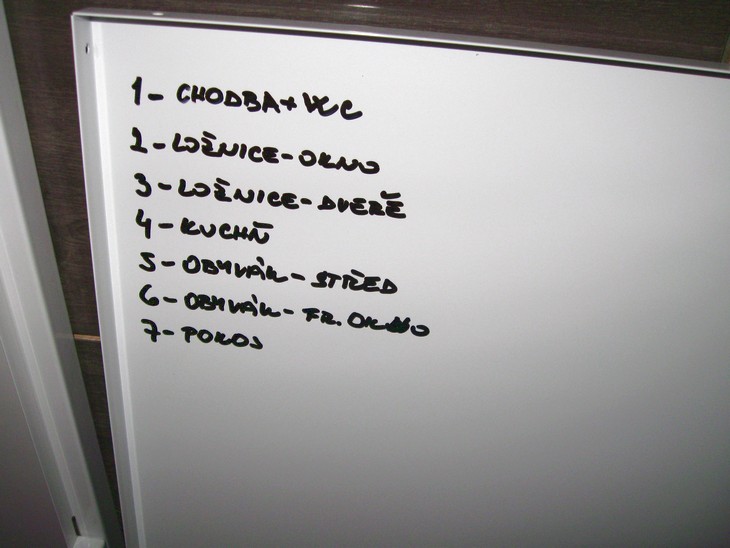 1- CHODBA+WC
2-LOŽNICE-OKNO
3-LOŽNICE-DVEŘE
4-KUCHŇ
5-OBYVÁK-STŘED
6-OBYVÁK-FR.OKNO
7-POKOJ